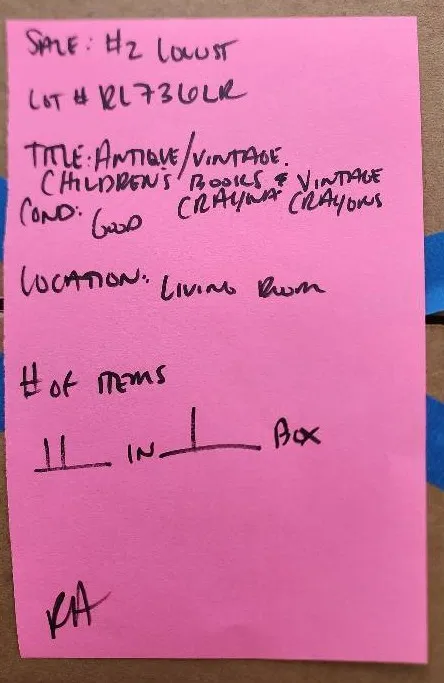 SALE: #2 LOCUST
LOT # RL736LR
TITLE: ANTIQUE/VINTAGE
CHILDREN'S BOOKS & VINTAGE
CRAYOLA CRAYONS
COND: GOOD
LOCATION: LIVING ROOM
# OF ITEMS
11 IN 1 BOX
RA